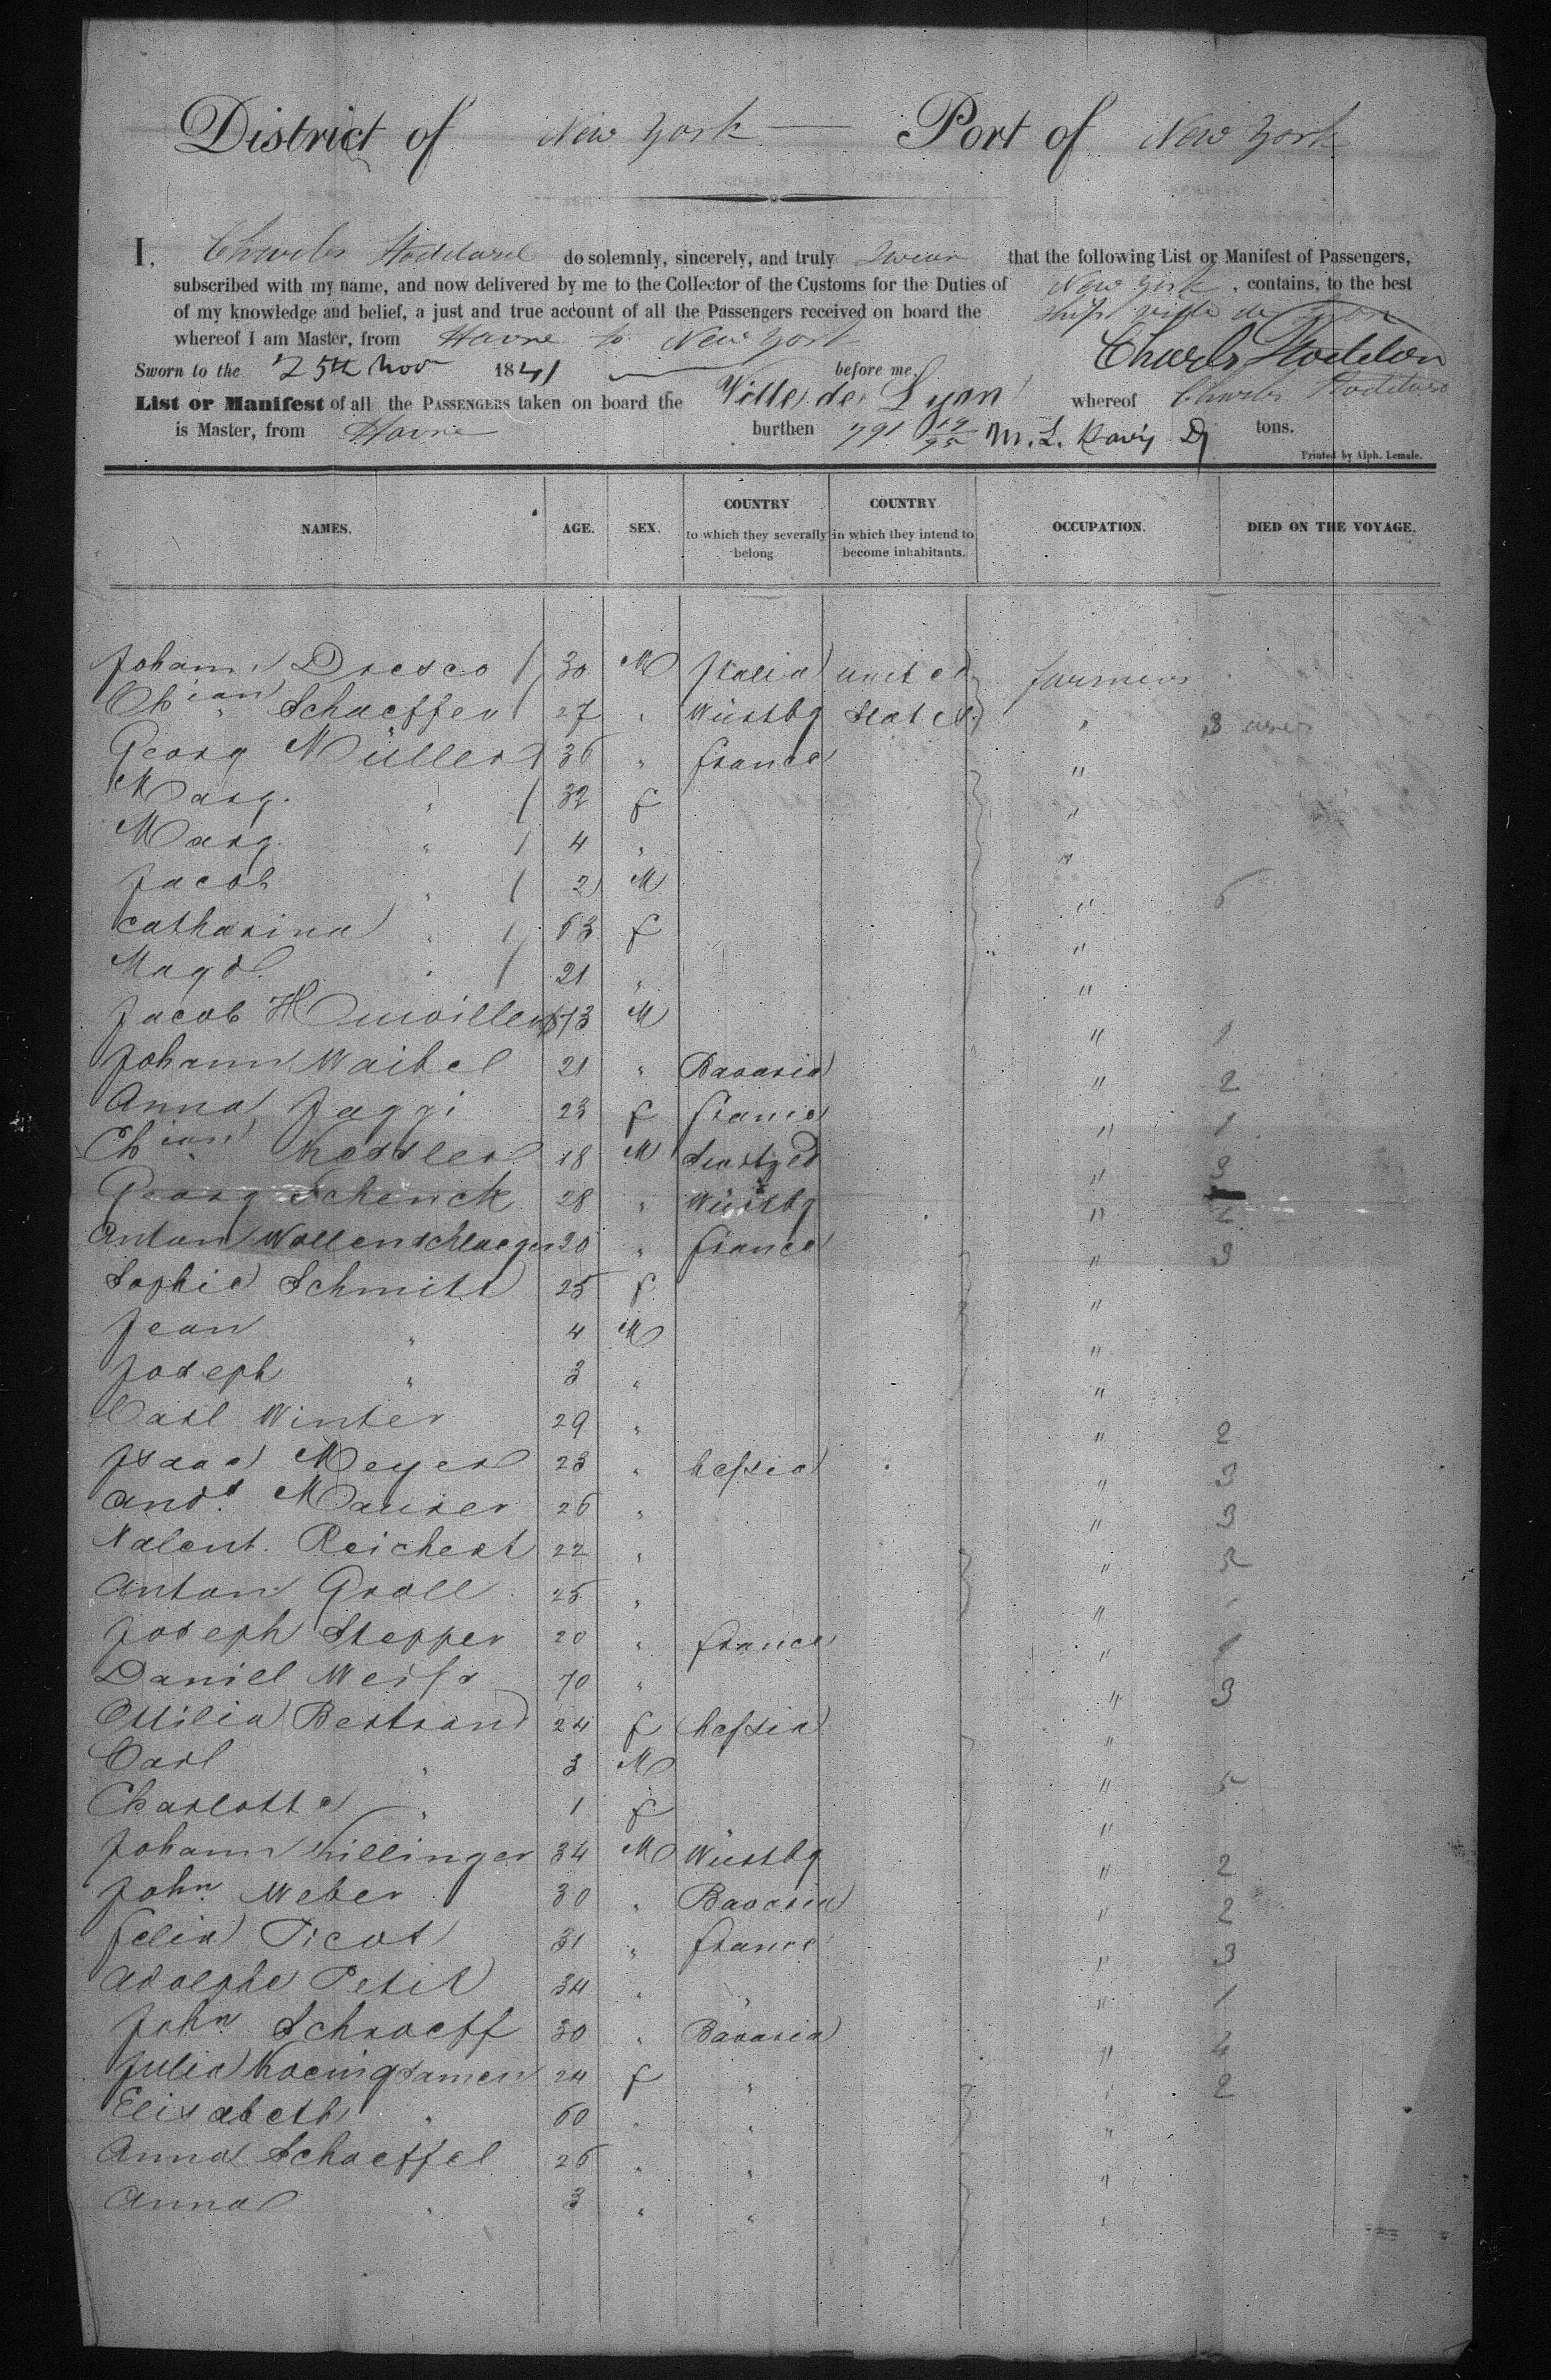 District of New York Port of New York
I, Charles Stoddard do solemnly, sincerely, and truly Swear that the following List or Manifest of Passengers,
subscribed with my name, and now delivered by me to the Collector of the Customs for the Duties of New York, contains, to the best
of my knowledge and belief, a just and true account of all the Passengers received on board the Ship Ville de Lyon
whereof I am Master, from Havre to New York
Charles Stoddard
Sworn to the 25th Nov 1841 before me,
List or Manifest of all the PASSENGERS taken on board the Ville de Lyon whereof Charles Stoddard
is Master, from Havre burthen 791 19/95 tons.
M. L. Davis
Printed by Alph. Lemale.
NAMES. AGE. SEX. COUNTRY to which they severally belong COUNTRY in which they intend to become inhabitants. OCCUPATION. DIED ON THE VOYAGE.
Johann Dresco 30 M Italia united farmers
Chian Schaeffer 27 " Würtbg States " 3
Georg Müller 36 " france "
Marg. " 32 f "
Marg. " 4 " "
Jacob " 2 M " 6
Catharina " 63 f "
Magd. " 21 " "
Jacob 13 M " 1
Johann Waibel 21 " Bavaria " 2
Anna Jaggi 23 f france " 1
Chian Kessler 18 M " 3
Georg Schenck 28 " Würtbg "
Anton Wollenschlaeger 20 " france " 3
Sophie Schmitt 25 f "
Jean " 4 M "
Joseph " 3 " "
Carl Winter 29 " " 2
Isaac Meyer 23 " hessia " 3
Andr. Maurer 26 " " 3
Valent. Reichert 22 " "
Anton Groll 25 " "
Joseph Stepper 20 " france " 1
Daniel Weiss 70 " " 3
Ottilia Bertrand 24 f hessia "
Carl " 3 M " 5
Charlotte " 1 f "
Johann Killinger 34 M Würtbg " 2
John Weber 30 " Bavaria " 2
felix Picot 31 " france " 3
Adolphe Petit 34 " " " 1
John Schroeff 30 " Bavaria "
Julia Koenigsamen 24 f " " 2
Elisabeth " 60 " " "
Anna Schaeffel 26 " " "
Anna " 3 " " "